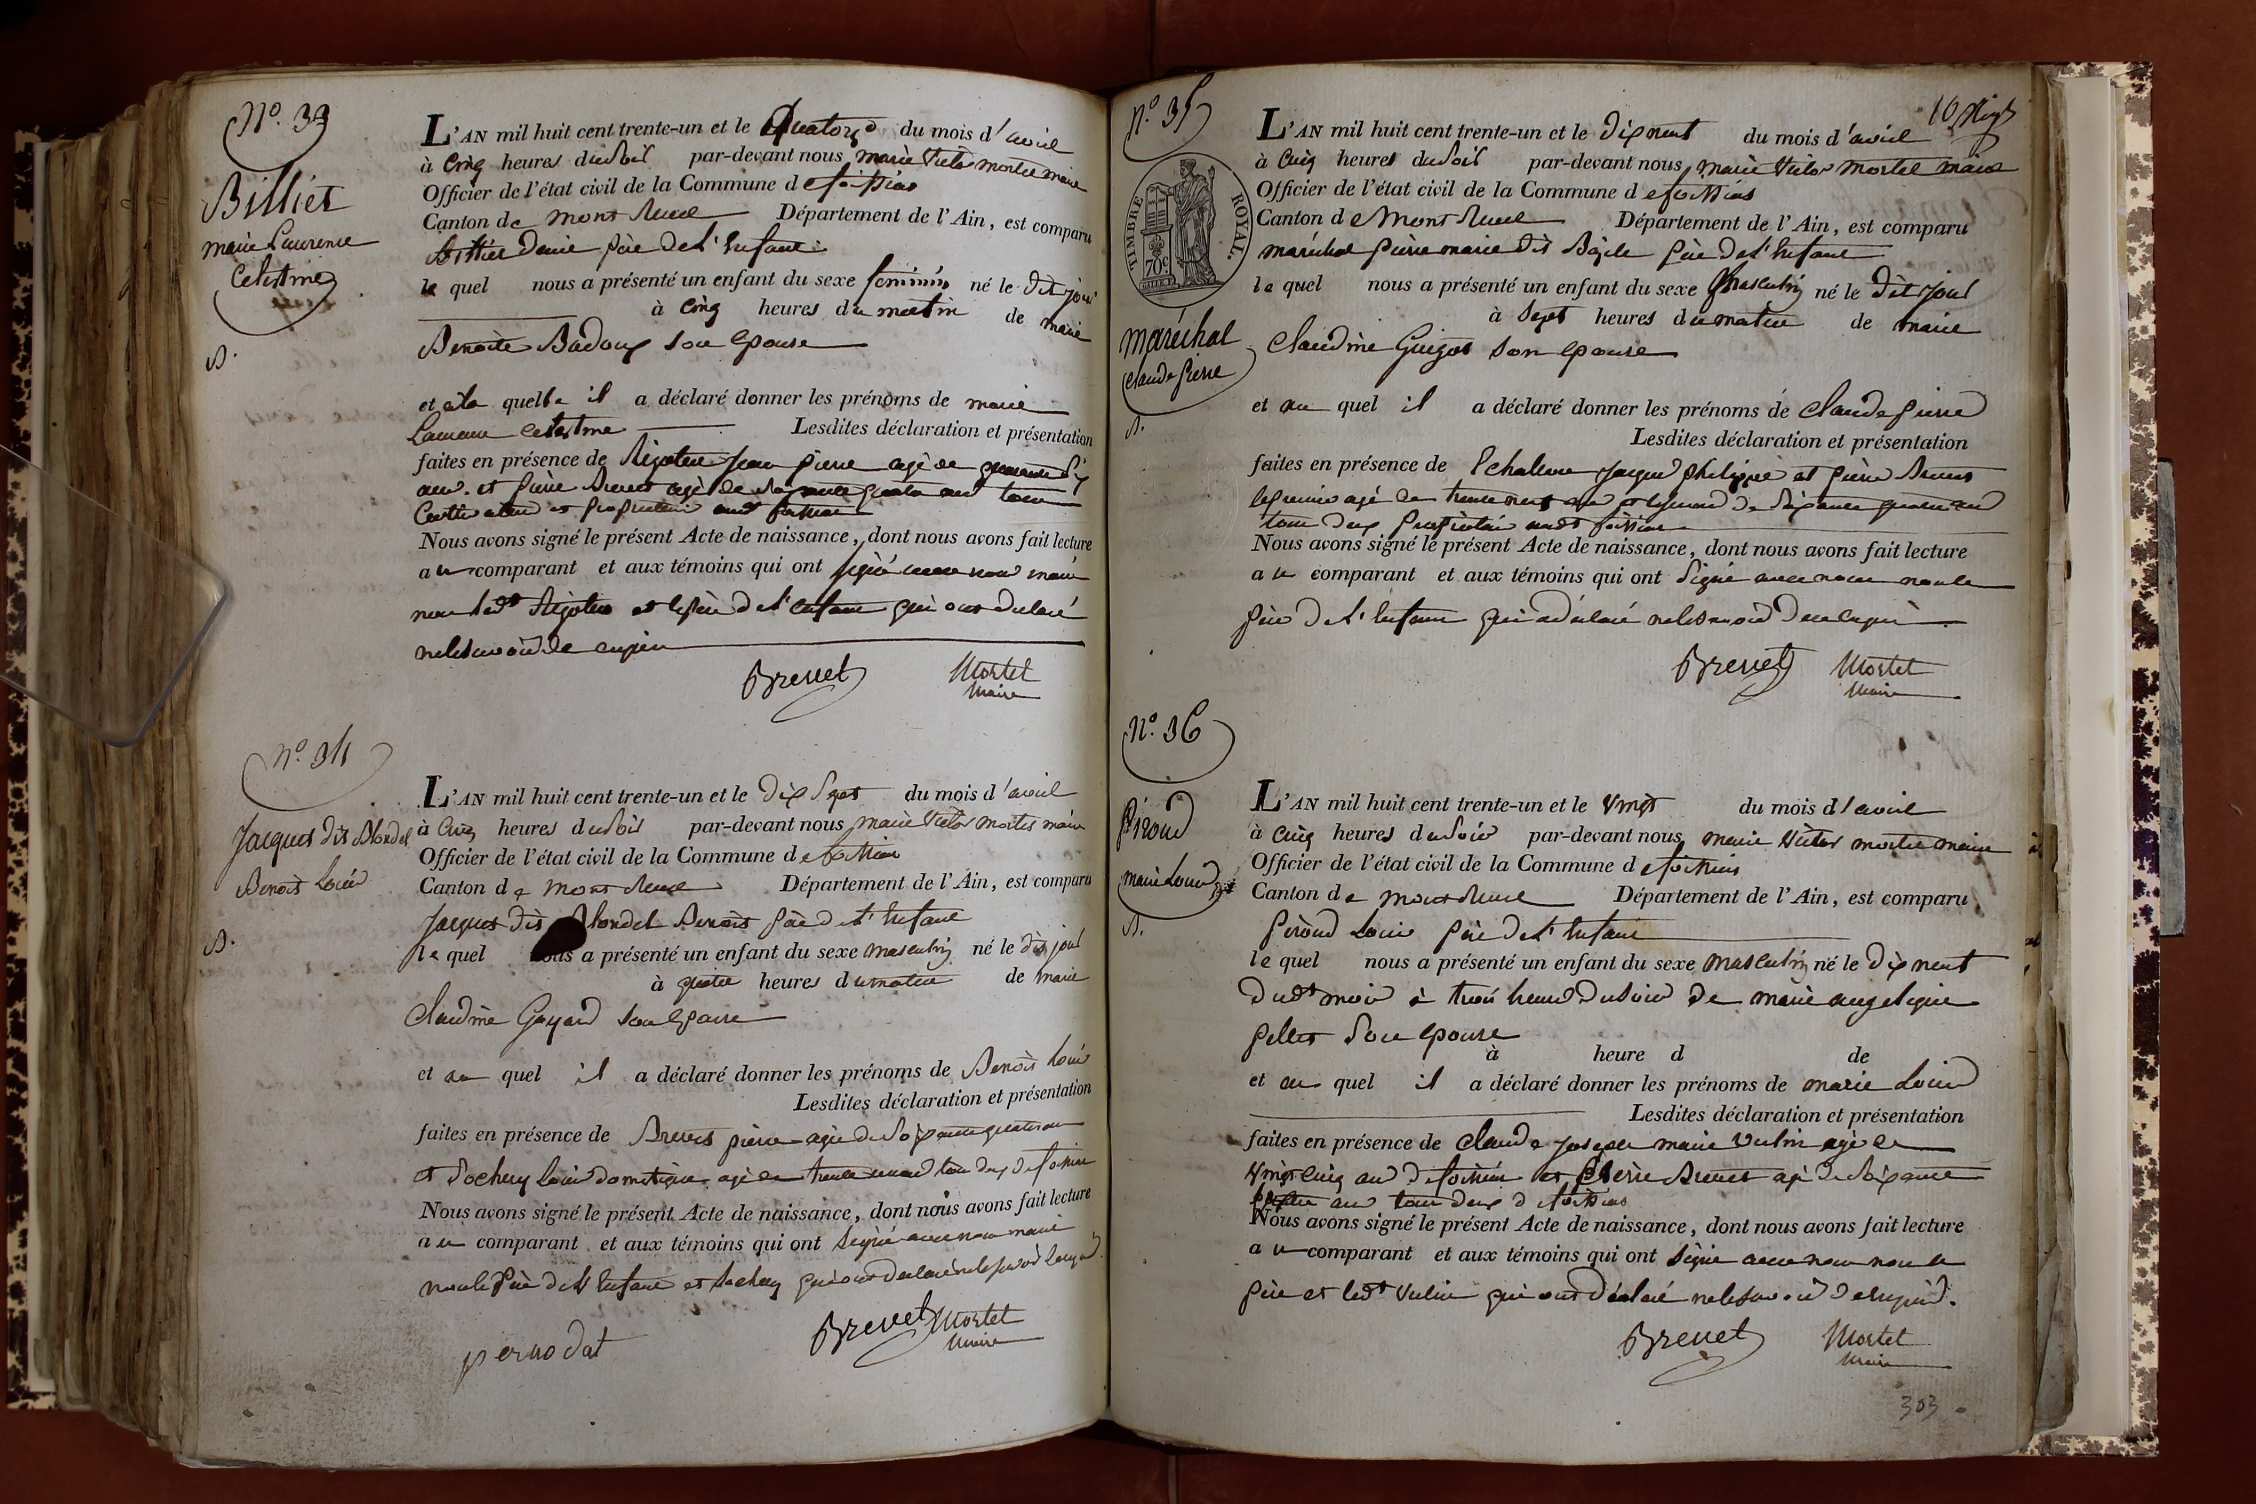 N.o 33
Billiet
marie Laurence
Celestine
L'AN mil huit cent trente-un et le Quatorze du mois d'avril
à Cinq heures du soir par-devant nous marie victor mortel maire
Officier de l'état civil de la Commune de foissiat
Canton de montrevel Département de l'Ain, est comparu
Billiet Denis père de l'enfant
le quel nous a présenté un enfant du sexe feminin né le dit jour
à Cinq heures du matin de marie
Benoite Badoux son epouse
et à la quelle il a déclaré donner les prénoms de marie
Laurence Celestine Lesdites déclaration et présentation
faites en présence de jean pierre agé de quarante six
ans et pierre Brevet agé de soixante quatre ans tous
Cultivateur et propriétaire audt foissiat
Nous avons signé le présent Acte de naissance, dont nous avons fait lecture
au comparant et aux témoins qui ont signé avec nous maire
non ledt et le père de l'enfant qui ont declaré
ne le savoir de enquis
Brevet Mortel
Maire
N.o 34
Jacquet dit Blondel
Benoit Louis
L'AN mil huit cent trente-un et le dix sept du mois d'avril
à Cinq heures du soir par-devant nous marie victor mortel maire
Officier de l'état civil de la Commune de foissiat
Canton de montrevel Département de l'Ain, est comparu
Jacquet dit Blondel Benoit père de l'enfant
le quel nous a présenté un enfant du sexe masculin né le dit jour
à quatre heures du matin de marie
Claudine Gayard son epouse
et au quel il a déclaré donner les prénoms de Benoit Louis
Lesdites déclaration et présentation
faites en présence de Brevet pierre agé de soixante quatre ans
et Sochay Louis domestique agé de trente un ans tous deux de foissiat
Nous avons signé le présent Acte de naissance, dont nous avons fait lecture
au comparant et aux témoins qui ont signé avec nous maire
non le père de l'enfant et Sochay qui ont declaré ne le savoir enquis
pernodat
Brevet Mortel
Maire
N.o 35
TIMBRE ROYAL.
70c
maréchal
claude pierre
L'AN mil huit cent trente-un et le dix neuf du mois d'avril
à Cinq heures du soir par-devant nous marie victor mortel maire
Officier de l'état civil de la Commune de foissiat
Canton de montrevel Département de l'Ain, est comparu
maréchal pierre marie dit Bazile père de l'enfant
le quel nous a présenté un enfant du sexe masculin né le dit jour
à sept heures du matin de marie
Claudine Guigot son epouse
et au quel il a déclaré donner les prénoms de claude pierre
Lesdites déclaration et présentation
faites en présence de jacques philippe et pierre Brevet
le premier agé de trente neuf ans et le second de soixante quatre ans
tous deux propriétaire audt foissiat
Nous avons signé le présent Acte de naissance, dont nous avons fait lecture
au comparant et aux témoins qui ont signé avec nous non le
père de l'enfant qui a déclaré ne le savoir de ce enquis
Brevet Mortel
Maire
N.o 36
péroud
marie Louis
L'AN mil huit cent trente-un et le vingt du mois d'avril
à Cinq heures du soir par-devant nous marie victor mortel maire
Officier de l'état civil de la Commune de foissiat
Canton de montrevel Département de l'Ain, est comparu
péroud Louis père de l'enfant
le quel nous a présenté un enfant du sexe masculin né le dix neuf
dudt mois à trois heures du soir de marie angelique
pellet son epouse
à heure d de
et au quel il a déclaré donner les prénoms de marie Louis
Lesdites déclaration et présentation
faites en présence de claude joseph marie vulin agé de
vingt cinq ans de foissiat et pierre Brevet agé de soixante
quatre ans tous deux de foissiat
Nous avons signé le présent Acte de naissance, dont nous avons fait lecture
au comparant et aux témoins qui ont signé avec nous non le
père et ledt vulin qui ont déclaré ne le savoir de enquis.
Brevet Mortel
Maire
303